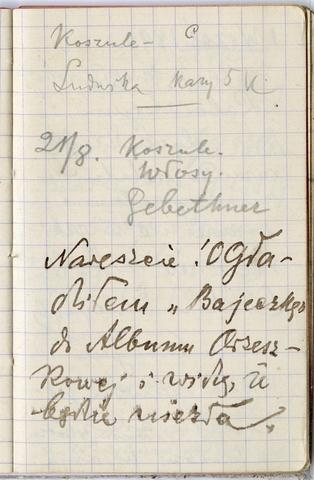 Koszule - C
Ludwika kazy 5 K
21/8. Koszule.
Włosy.
Gebethner
Nareszcie! Ogła-
dziłem „Bajeczkę
do Albumu Orzesz-
kowej i widzę, że
będzie niezła.